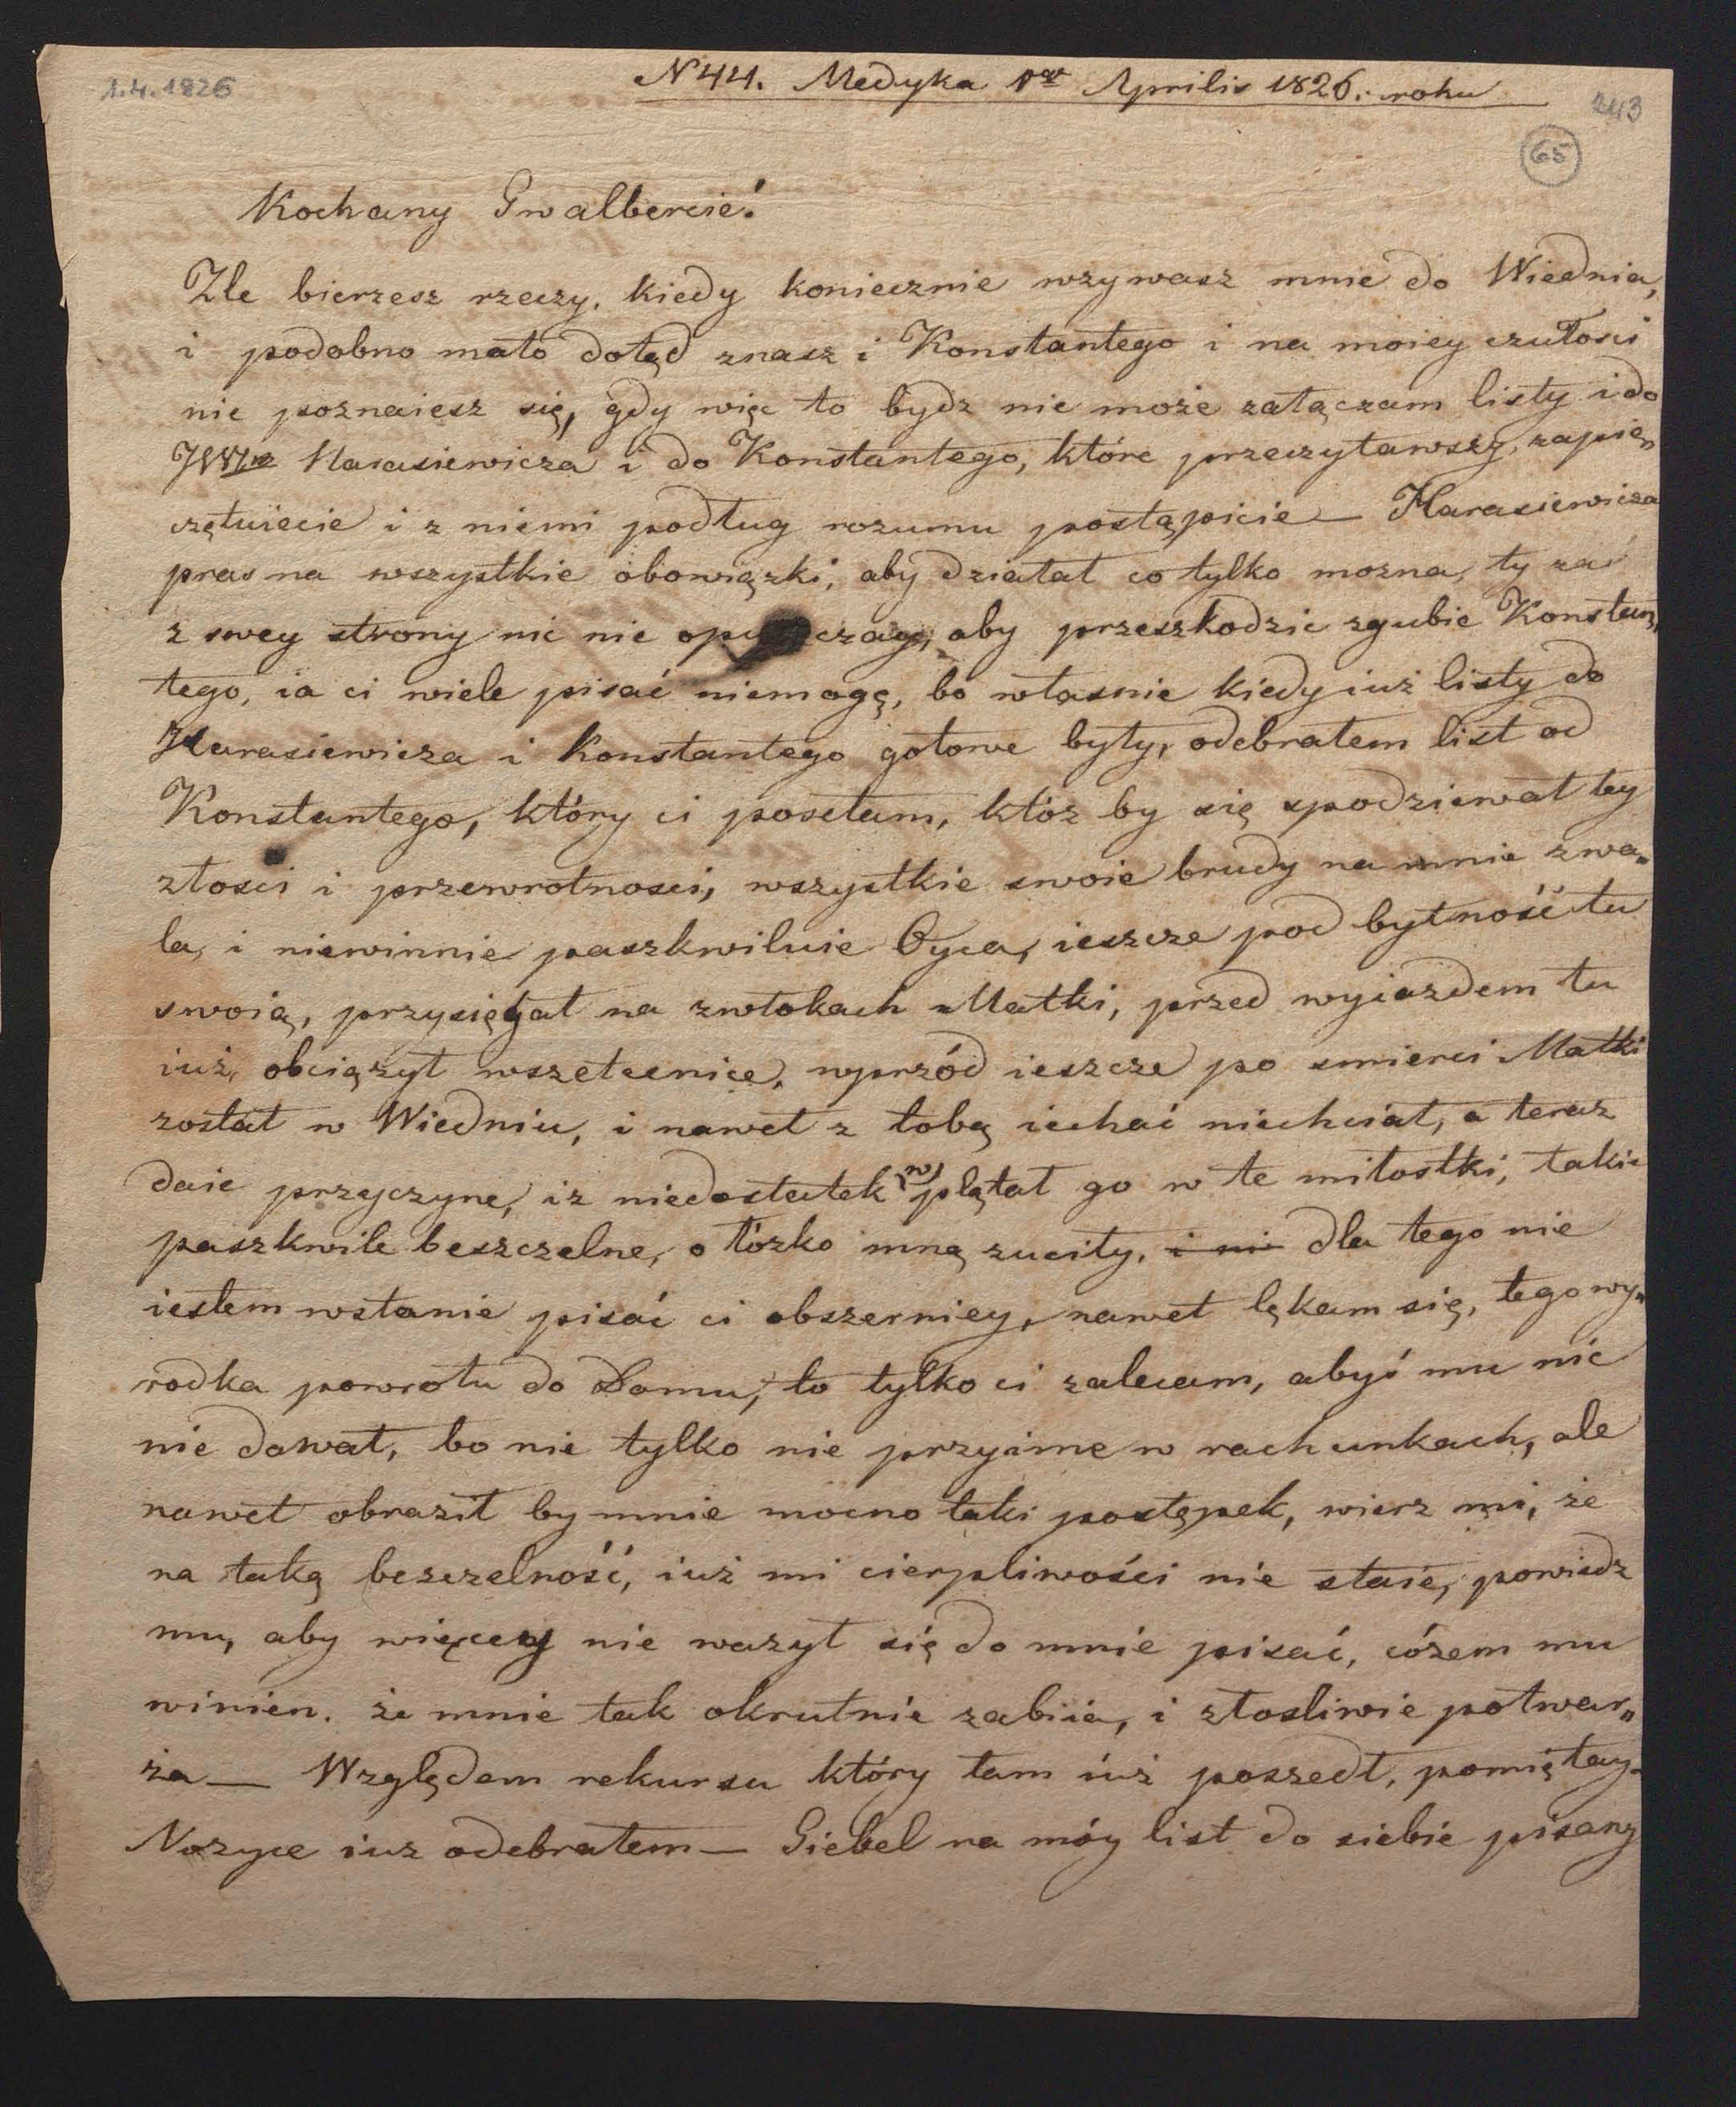 1.4.1826
N 44. Medyka 1ma Aprilis 1826. roku
243
65
Kochany Gwalbercie!
Zle bierzesz rzeczy, kiedy koniecznie wzywasz mnie do Wiednia,
i podobno mało dotąd znasz i Konstantego i na moiey czułości
nie poznaiesz się, gdy więc to bydz nie może załączam listy i do
Harasiewicza i do Konstantego, które przeczytawszy, zapie„
czętuiecie i z niemi podług rozumu postąpicie — Harasiewicza
pras na wszystkie obowiązki, aby działał co tylko mozna, ty zaś
z swey strony nic nie opuszczay, aby przeszkodzic zgubie Konstan„
tego, ia ci wiele pisać niemogę, bo własnie kiedy iuż listy do
Harasiewicza i Konstantego gotowe były, odebrałem list od
Konstantego, który ci posełam, któz by się spodziewał tey
złosci i przewrotnosci, wszystkie swoie brudy na mnie zwa„
la, i niewinnie paszkwiluie Oyca, ieszcze pod bytność tu
swoią, przysięgał na zwłokach Matki, przed wyiazdem tu
iuż, obciązył wszetecnice, wprzód ieszcze po smierci Matki
został w Wiedniu, i nawet z tobą iechać niechciał, a teraz
daie przyczyne, iz niedostatek wplątał go w te miłostki, takie
paszkwile beszczelne, o łózko mną zuciły, i ni dla tego nie
iestem wstanie pisać ci obszerniey, nawet lękam się, tego wy„
rodka powrotu do Domu, to tylko ci zalecam, abyś mu nic
nie dawał, bo nie tylko nie przyime w rachunkach, ale
nawet obraził by mnie mocno taki postępek, wierz mi, że
na taką beszczelność, iuż mi cierpliwości nie staie, powiedz
mu, aby więcey nie wazył się do mnie pisać, cózem mu
winien. że mnie tak okrutnie zabiia, i złosliwie potwar„
za — Względem rekursu który tam iuż poszedł, pomiętay.
Nozyce iuz odebrałem — Giebel na móy list do siebie pisany